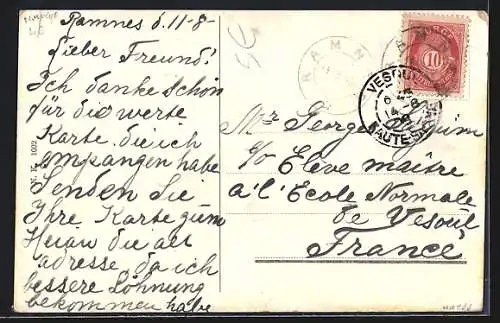 Ramnes d. 11-8-
Lieber Freund!
Ich danke schön
für die werte
Karte, die ich
empangen habe
Senden Sie
Ihre Karte zum
die alt
adresse, da ich
bessere Löhnung
bekommen habe
N. K. 1002
NORGE
10
RAMN
VESOUL
HAUTE-S
Mr Georges
c/o Elève maître
à l'Ecole Normale
de Vesoul
France